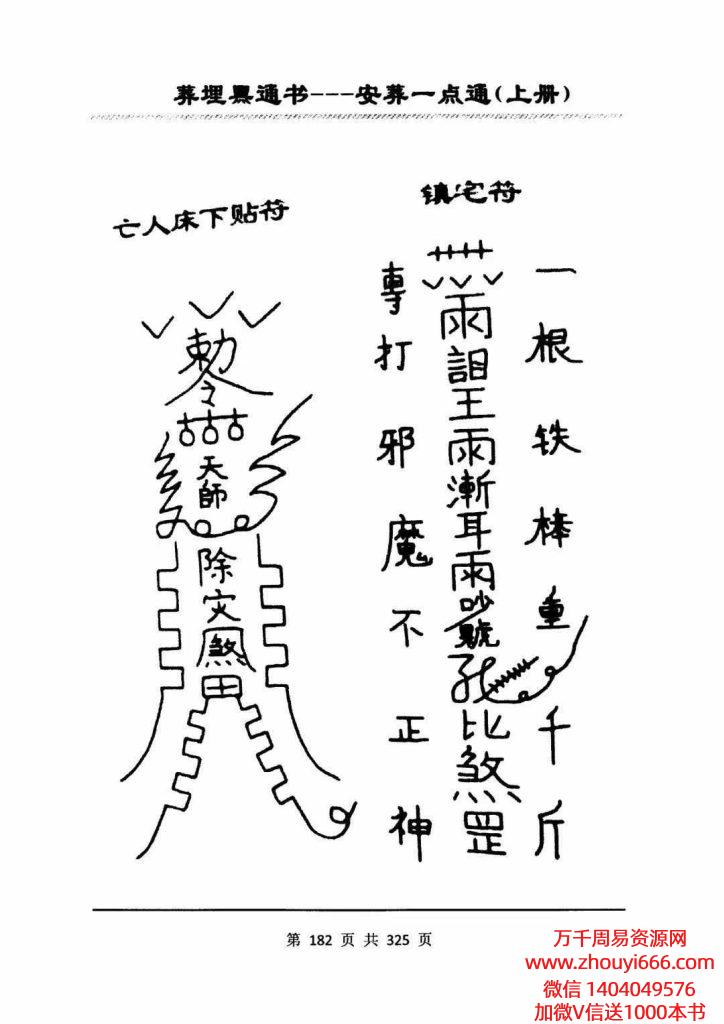 葬埋黑通书---安葬一点通(上册)
亡人床下贴符
镇宅符
勅
令
天師
除灾
煞
一根铁棒重千斤
雨
詛
王
雨
漸
耳
雨
吵
號
比
煞
罡
專打邪魔不正神
第 182 页 共 325 页
万千周易资源网
www.zhouyi666.com
微信 1404049576
加微V信送1000本书